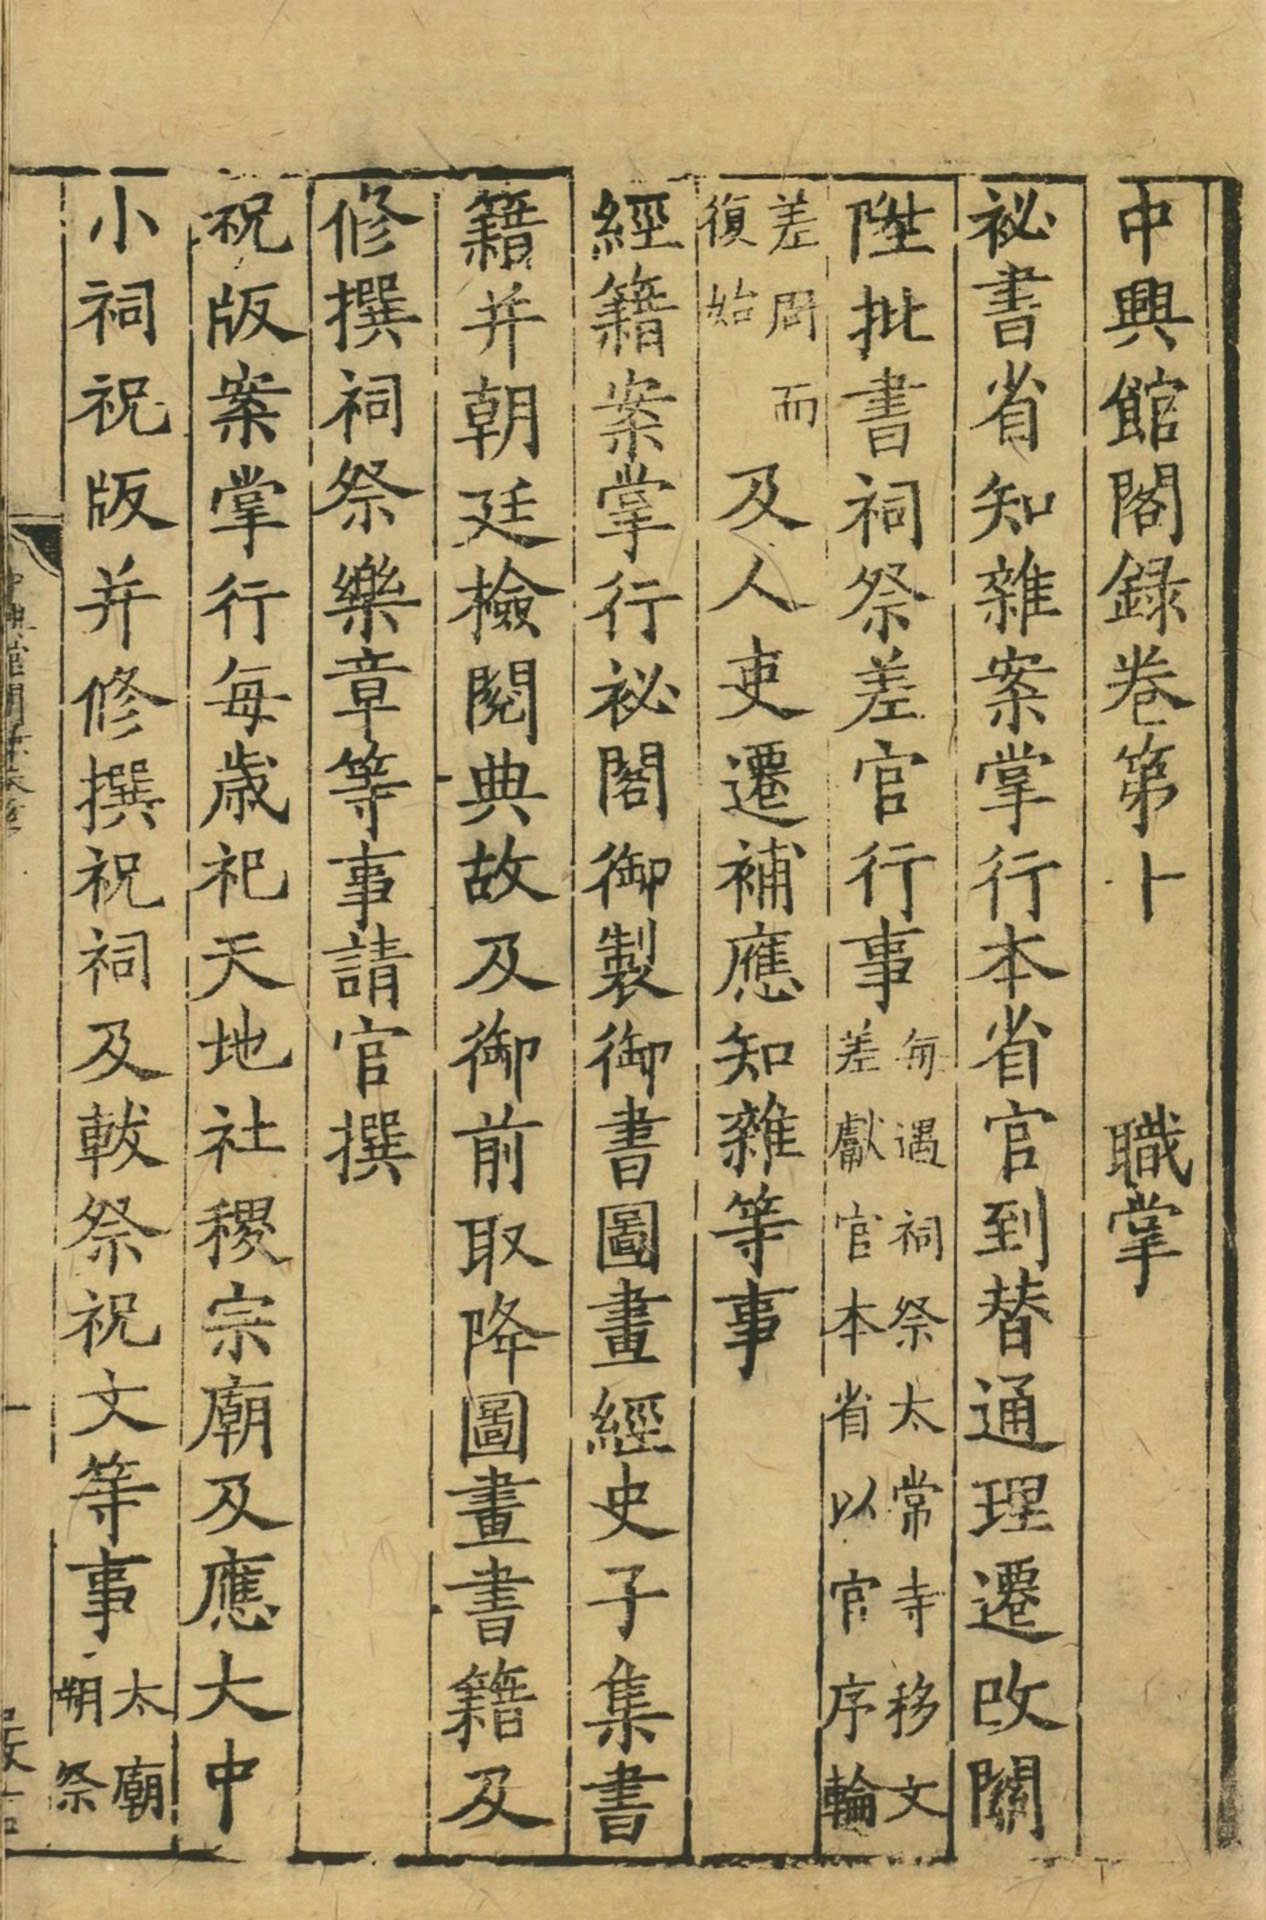 中興館閣録卷第十　　職掌
祕書省知雜案掌行本省官到替通理遷改關
陞批書祠祭差官行事每遇祠祭太常寺移文差獻官本省以官序輪
差周而復始及人吏遷補應知雜等事
經籍案掌行祕閣御製御書圖畫經史子集書
籍并朝廷檢閱典故及御前取降圖畫書籍及
修撰祠祭樂章等事請官撰
祝版案掌行每歲祀天地社稷宗廟及應大中
小祠祝版并修撰祝祠及軷祭祝文等事太廟朔祭